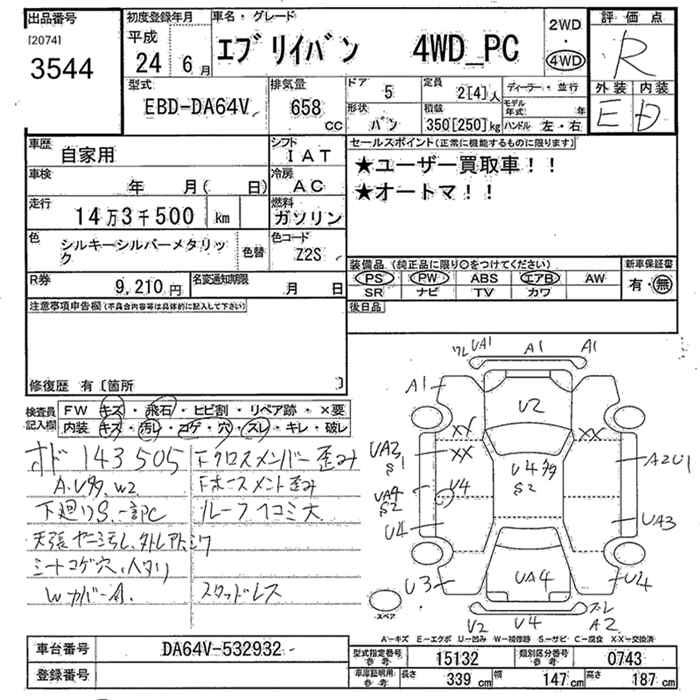 出品番号
[2074]
3544
初度登録年月
平成
24 6月
車名・グレード
エブリイバン 4WD_PC
2WD
・
4WD
評価点
R
外装 内装
E D
型式
EBD-DA64V
排気量
658 cc
ドア
5
定員
2[4]人
ディーラー・並行
形状
バン
積載
350[250]kg
モデル年式 年
ハンドル 左・右
車歴
自家用
シフト
IAT
車検
年 月( 日)
冷房
AC
走行
14万3千500 km
燃料
ガソリン
色
シルキーシルバーメタリック
色替
色コード
Z2S
R券
9,210円
名変通知期限
月 日
セールスポイント(正常に機能するものに限ります)
★ユーザー買取車!!
★オートマ!!
装備品(純正品に限り○をつけてください)
新車保証書
PS PW ABS エアB AW
SR ナビ TV カワ
有・無
注意事項申告欄(不具合内容等は具体的に記入して下さい)
後日品
修復歴 有〔箇所 〕
検査員記入欄
FW キズ・飛石・ヒビ割・リペア跡・×要
内装 キズ・汚レ・コゲ・穴・スレ・キレ・破レ
オド 143505
A.U多 W2
下廻りS.一部C
天張ヤニ汚し、外しアトシワ
シートコゲ穴、ヘタリ
Wカバー A.
Fクロスメンバー歪み
Fホースメント歪み
ルーフ凹コミ大
スタッドレス
ワレ UA1 A1 A1
A1
U2
XX XX
XX
UA3
S1
U4多
S2
A2U1
UA4
S2
U4
U4
UA3
U3
UA4
U4
スペア
U2 U4 ズレ
A2
A-キズ E-エクボ U-凹み W-補修跡 S-サビ C-腐食 XX-交換済
車台番号
DA64V-532932
登録番号
型式指定番号 参考
15132
類別区分番号 参考
0743
車庫証明用 参考
長さ 339cm
幅 147cm
高さ 187cm